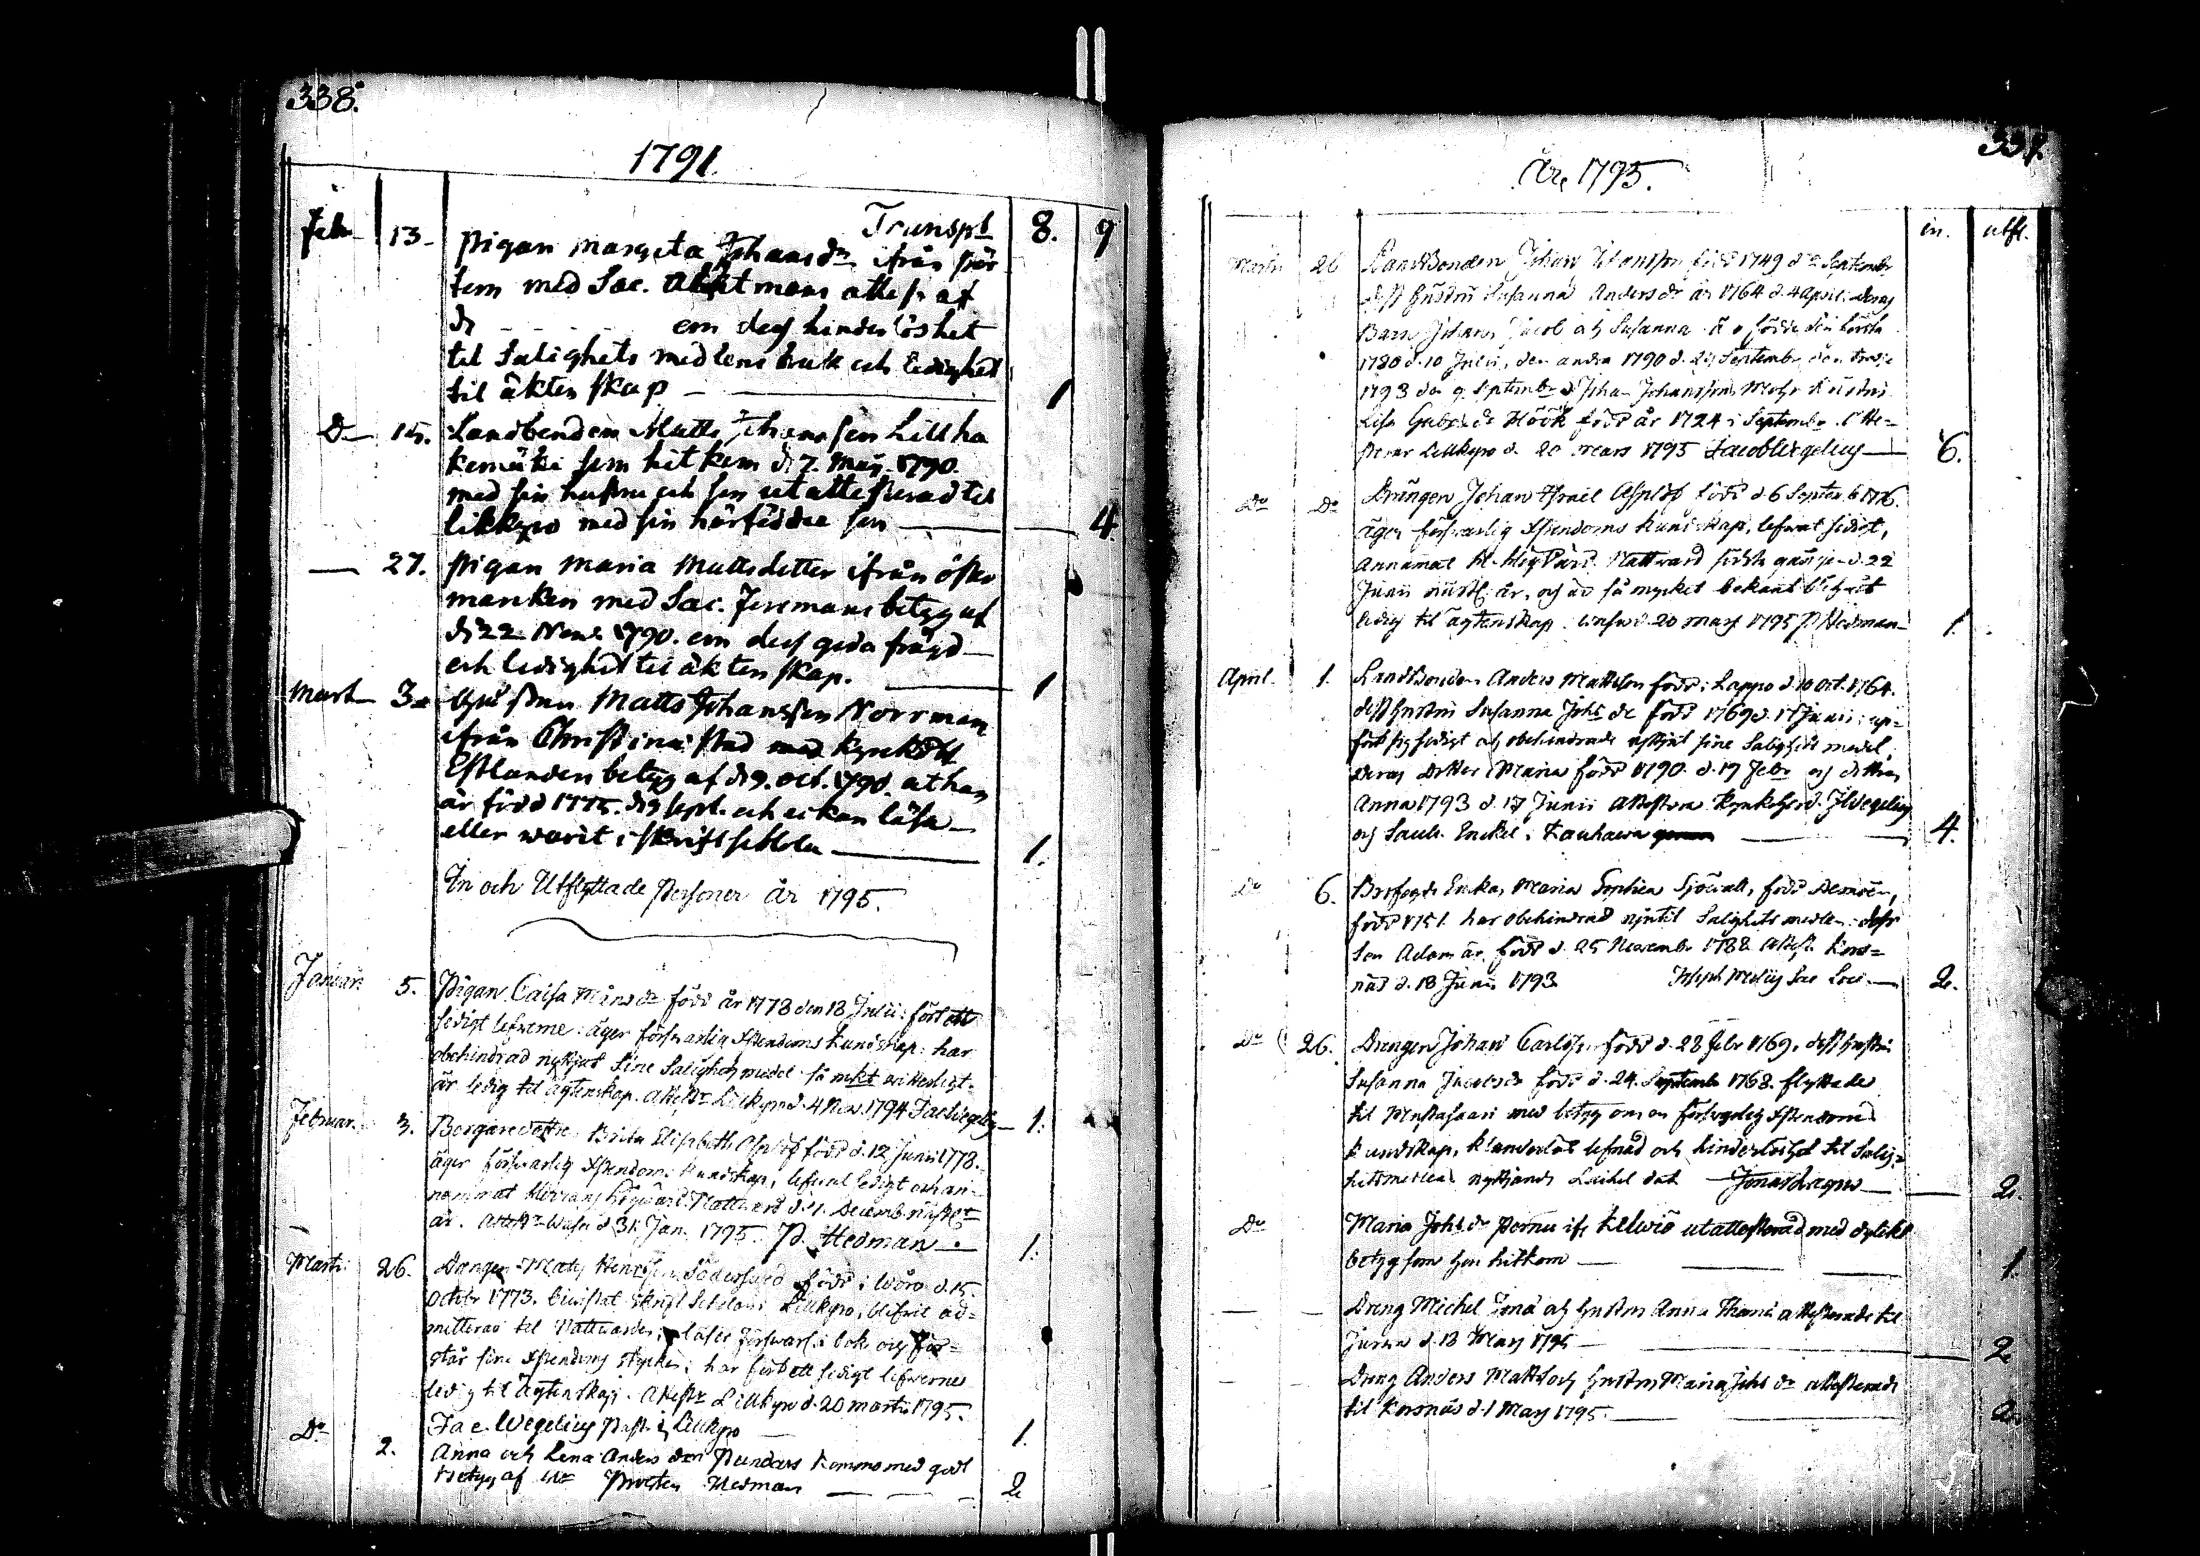 338.
1791.
Transpt 8. 9
Feb 13. Pigan Margeta Johansdr ifrån Pör
tem med Sac. attest af
d em dess hinderlöshet
til Salighets medlens bruk och ledighet
til äktenskap 1
D 15. Landbonden Matts Johansson Lillha
kemäki som hit kom d. 7. Maij 1790.
med sin hustru och son utattesterad til
lilkyro med sin härfödde son 4
27. Pigan Maria Mattsdotter ifrån öster
marken med Sac. Forsmans betyg af
d. 22 Nov. 1790. om dess goda frägd
och ledighet til äktenskap. 1
Mart 3. Matts Johansson Norrman
ifrån Christinæstad med Kyrkoh
Estlanders betyg af d. 9. oct. 1790. at han
är född 1775. d. 9 sept. och ei kan läsa
eller warit i Skriftschola 1.
In och Utflyttade Personer År 1795.
Januari 5. Pigan Caisa Månsdr född år 1773 den 13 Julii: fört ett
sedigt lefwerne: äger förswarlig Xstendoms kundskap: har
obehindrad nyttjat Sine Salighets medel så mkt witterligt
är ledig til ägtenskap. Attestr Lillkyro d. 4 Nov. 1794 Jac Wegelius 1.
Februar. 3. Borgaredottr Brita Elisabeth Asplöf född d. 12 Junii 1778.
äger förswarlig Xstendoms Kundskap, lefwat sedigt och an-
nammat Herrans Högwärd. Nattward d. 1. Decemb. sistl
år. Attestr Wasa d. 31. Jan. 1795. P. Hedman 1.
Martii 26. Drängen Mats Henrsson Södersved född i Wörå d. 15.
Octobr 1773. bewistat Skrift Scholan i Lillkyro, blifwit ad-
mitterad til Nattwarden; läser förswarl. i bok och för-
står sine Xstendoms stycken; har fört ett sedigt lefwerne
ledig til Ägtenskap. Attestr Lillkyro d. 20 martii 1795.
Jac. Wegelius Past. i Lillkyro 1.
Do 2. Anna och Lena Anders dr Pundars kommo med godt
betyg af Hr Prosten Hedman 2
337.
År 1795.
in. utfl.
Martii 26 Landbonden Johan Johansson född 1749 d. Septembr
dess hustru Susanna Anders dr år 1764 d. 4 April: deras
Barn Johan, Jacob och Susanna födde den första
1780 d. 10 Julii, den andra 1790 d. 29 Septembr den tredje
1793 den 9 Septembr Johan Johanssons Modr Enkan
Lisa Gabrdr Höök född år 1724 i Septembr. Atte-
sterar Lillkyro d. 20 mars 1795 Jacob Wegelius 6.
Do Do Drängen Johan Israel Asplöf född d. 6 Septemb 1776.
äger förswarlig Xstendoms kundskap, lefwat sedigt,
annammat H. Högwärd. Nattward sista gången d. 22
Junii sistl. år, och så mycket bekant är
ledig til ägtenskap Wasa d. 20 mars 1795 P. Hedman 1.
April. 1. Landbonden Anders Mattsson född i Lappo d. 10 oct. 1764.
dess hustru Susanna Johsdr född 1769 d. 17 Junii: up-
fört sig sedigt och obehindrade nyttjat sine Salighets medel.
Deras Dotter Maria född 1790. d. 19 Febr och dottren
Anna 1793 d. 17 Junii attestera Kyrkoherd. J Wegelius
och Sacell. Enckel i Kauhawa 4.
Do 6. Brofogde Enkan Maria Sophia Sjöwall, född
född 1751 har obehindrad njutit Salighets medlen: dess
Son Adam är född d. 25 Novemb. 1788 attest. Kors-
näs d. 18 Junii 1793 Joseph Molijs Sac Loci 2.
Do 26. Drengen Johan Carlsson född d. 28 Febr 1769, dess hustru
Susanna Jacobsdr född d. 24. Septemb 1768. flyttade
til Mustasaari med betyg om en förswarlig Xstendoms
kundskap, klanderlös lefnad och hinderlöshet til Salig-
hetsmedlens nyttjande Laihela dat Jonas Lagus 2.
Do Maria Johs dr Pernu ifr utattesterad med dylikt
betyg som hon hitkom 1.
Dreng Michel Jona och hustru Anna Thomæ attesterade til
Jurva d. 13 Maij 1795 2
Dreng Anders Matts och hustru Maria Johs dr attesterade
til Korsnäs d. 1 Maij 1795. 2.